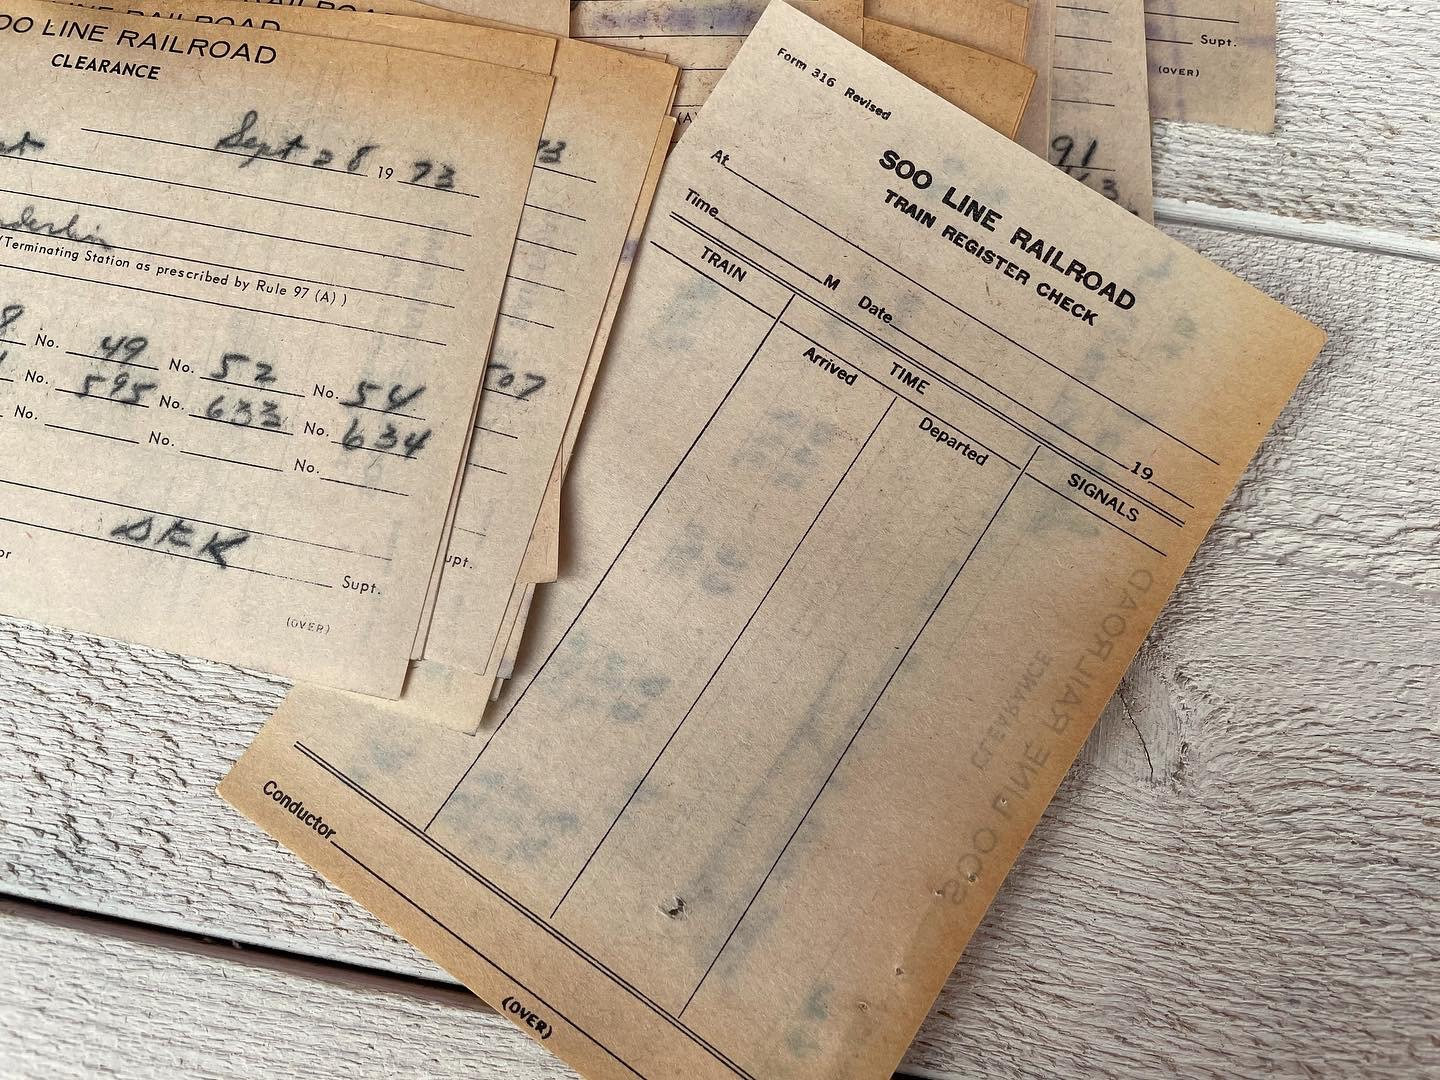 SOO LINE RAILROAD
CLEARANCE
Sept 28 19 73
(Terminating Station as prescribed by Rule 97 (A) )
No. 49 No. 52 No. 54
No. 595 No. 633 No. 634
No. No. No.
SKK
Supt.
(OVER)
73
507
Supt.
(A)
91
Supt.
(OVER)
Form 316 Revised
SOO LINE RAILROAD
TRAIN REGISTER CHECK
At
Time M Date 19
TRAIN TIME SIGNALS
Arrived Departed
Conductor
(OVER)
SOO LINE RAILROAD
CLEARANCE